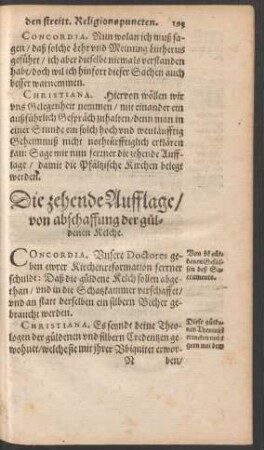 den streitt. Religionspuncten. 193
CONCORDIA. Nun wolan ich muß sa-
gen / daß solche Lehr vnd Meinung Lutherus
geführt / ich aber dieselbe niemals verstanden
habe / doch wil ich hinfort dieser Sachen auch
besser warnemmen.
CHRISTIANA. Hiervon wöllen wir
vns Gelegenheit nemmen / mit einander ein
außführlich Gespräch zuhalten / denn man in
einer Stunde ein solch hoch vnd weitläufftig
Geheimnuß nicht nothürfftiglich erklären
kan: Sage mir nun ferrner die zehende Auff-
lage / damit die Pfältzische Kirchen belegt
werden.
Die zehende Aufflage /
von abschaffung der gül-
denen Kelche.
CONCORDIA. Vnsere Doctores ge-
ben ewrer Kirchenreformation ferrner
schuldt: Daß die güldene Kelch sollen abge-
than / vnd in die Schatzkammer verschaffet /
vnd an statt derselben ein silbern Becher ge-
braucht werden.
Von
denen Gefäs-
sen deß Sa-
craments.
CHRISTIANA. Es seyndt deine Theo-
logen der güldenen vnd silbern Credentzen ge-
wohnet / welche sie mit jhrer Vbiquitet erwor-
Diese
gern mit dem
N ben /